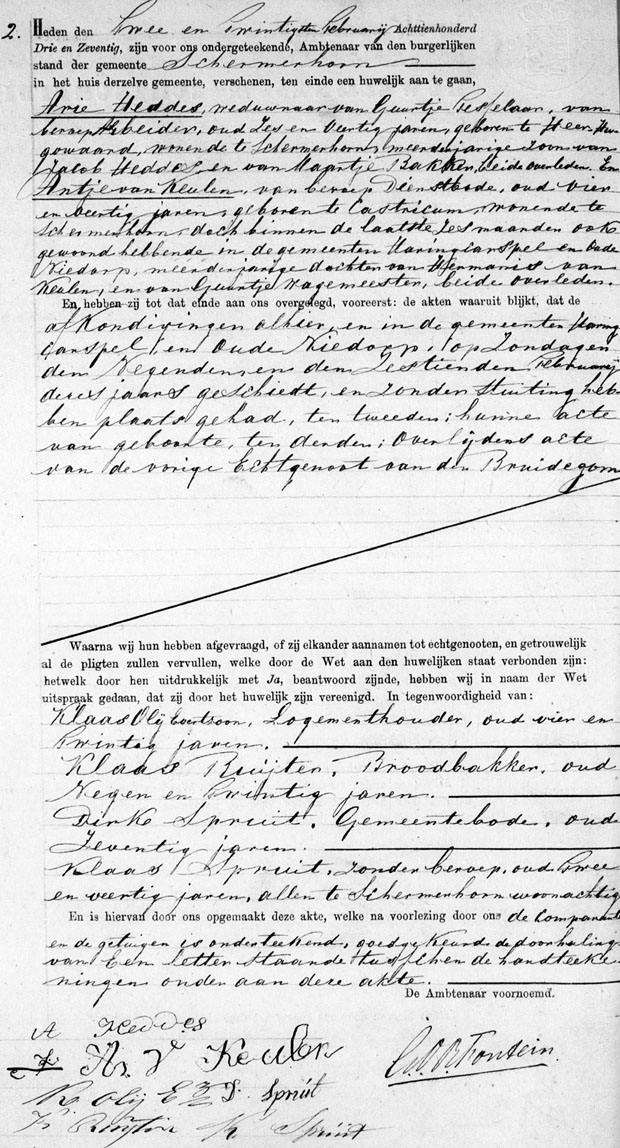 2.
Heden den Twee en Twintigsten Februarij Achttienhonderd
Drie en Zeventig, zijn voor ons ondergeteekende, Ambtenaar van den burgerlijken
stand der gemeente Schermerhorn
in het huis derzelve gemeente, verschenen, ten einde een huwelijk aan te gaan,
Arie Heddes, weduwnaar van Guurtje Kesselaar, van
beroep Arbeider, oud Zes en Veertig jaren, geboren te Heer Hu-
gowaard, wonende te Schermerhorn, meerderjarige Zoon van
Jacob Heddes, en van Maartje Bakker, beide overleden. En
Antje van Keulen, van beroep Dienstbode, oud vier
en veertig jaren, geboren te Castricum, wonende te
Schermerhorn, doch binnen de laatste zes maanden ook
gewoond hebbende in de gemeenten Haringcarspel en Oude
Niedorp, meerderjarige dochter van Hermanus van
Keulen, en van Guurtje Wagemeester, beide overleden.
En, hebben zij tot dat einde aan ons overgelegd, vooreerst: de akten waaruit blijkt, dat de
afkondigingen alhier, en in de gemeenten Haring
carspel, en Oude Niedorp, op Zondagen
den Negenden en den Zestienden Februarij
dezes jaars geschiedt, en zonder stuiting heb-
ben plaats gehad, ten tweeden: hunne acte
van geboorte, ten derden: Overlijdens acte
van de vorige Echtgenoot van den Bruidegom
Waarna wij hun hebben afgevraagd, of zij elkander aannamen tot echtgenooten, en getrouwelijk
al de pligten zullen vervullen, welke door de Wet aan den huwelijken staat verbonden zijn:
hetwelk door hen uitdrukkelijk met Ja, beantwoord zijnde, hebben wij in naam der Wet
uitspraak gedaan, dat zij door het huwelijk zijn vereenigd. In tegenwoordigheid van:
Klaas Olij Evertszoon, Logementhouder, oud vier en
Twintig jaren.
Klaas Ruijter, Broodbakker, oud
Negen en Twintig jaren.
Dirk Spruit, Gemeentebode, oud
Zeventig jaren.
Klaas Spruit, zonder beroep, oud Twee
en veertig jaren, allen te Schermerhorn woonachtig
En is hiervan door ons opgemaakt deze akte, welke na voorlezing door ons de Comparanten
en de getuigen is onderteekend, goedgekeurd de doorhaling
van Een letter staande tusschen de handteeke-
ningen onder aan deze akte.
De Ambtenaar voornoemd.
A Heddes
A. v Keulen
Fontein.
K. Olij Ez D. Spruit
K. Ruijter K Spruit